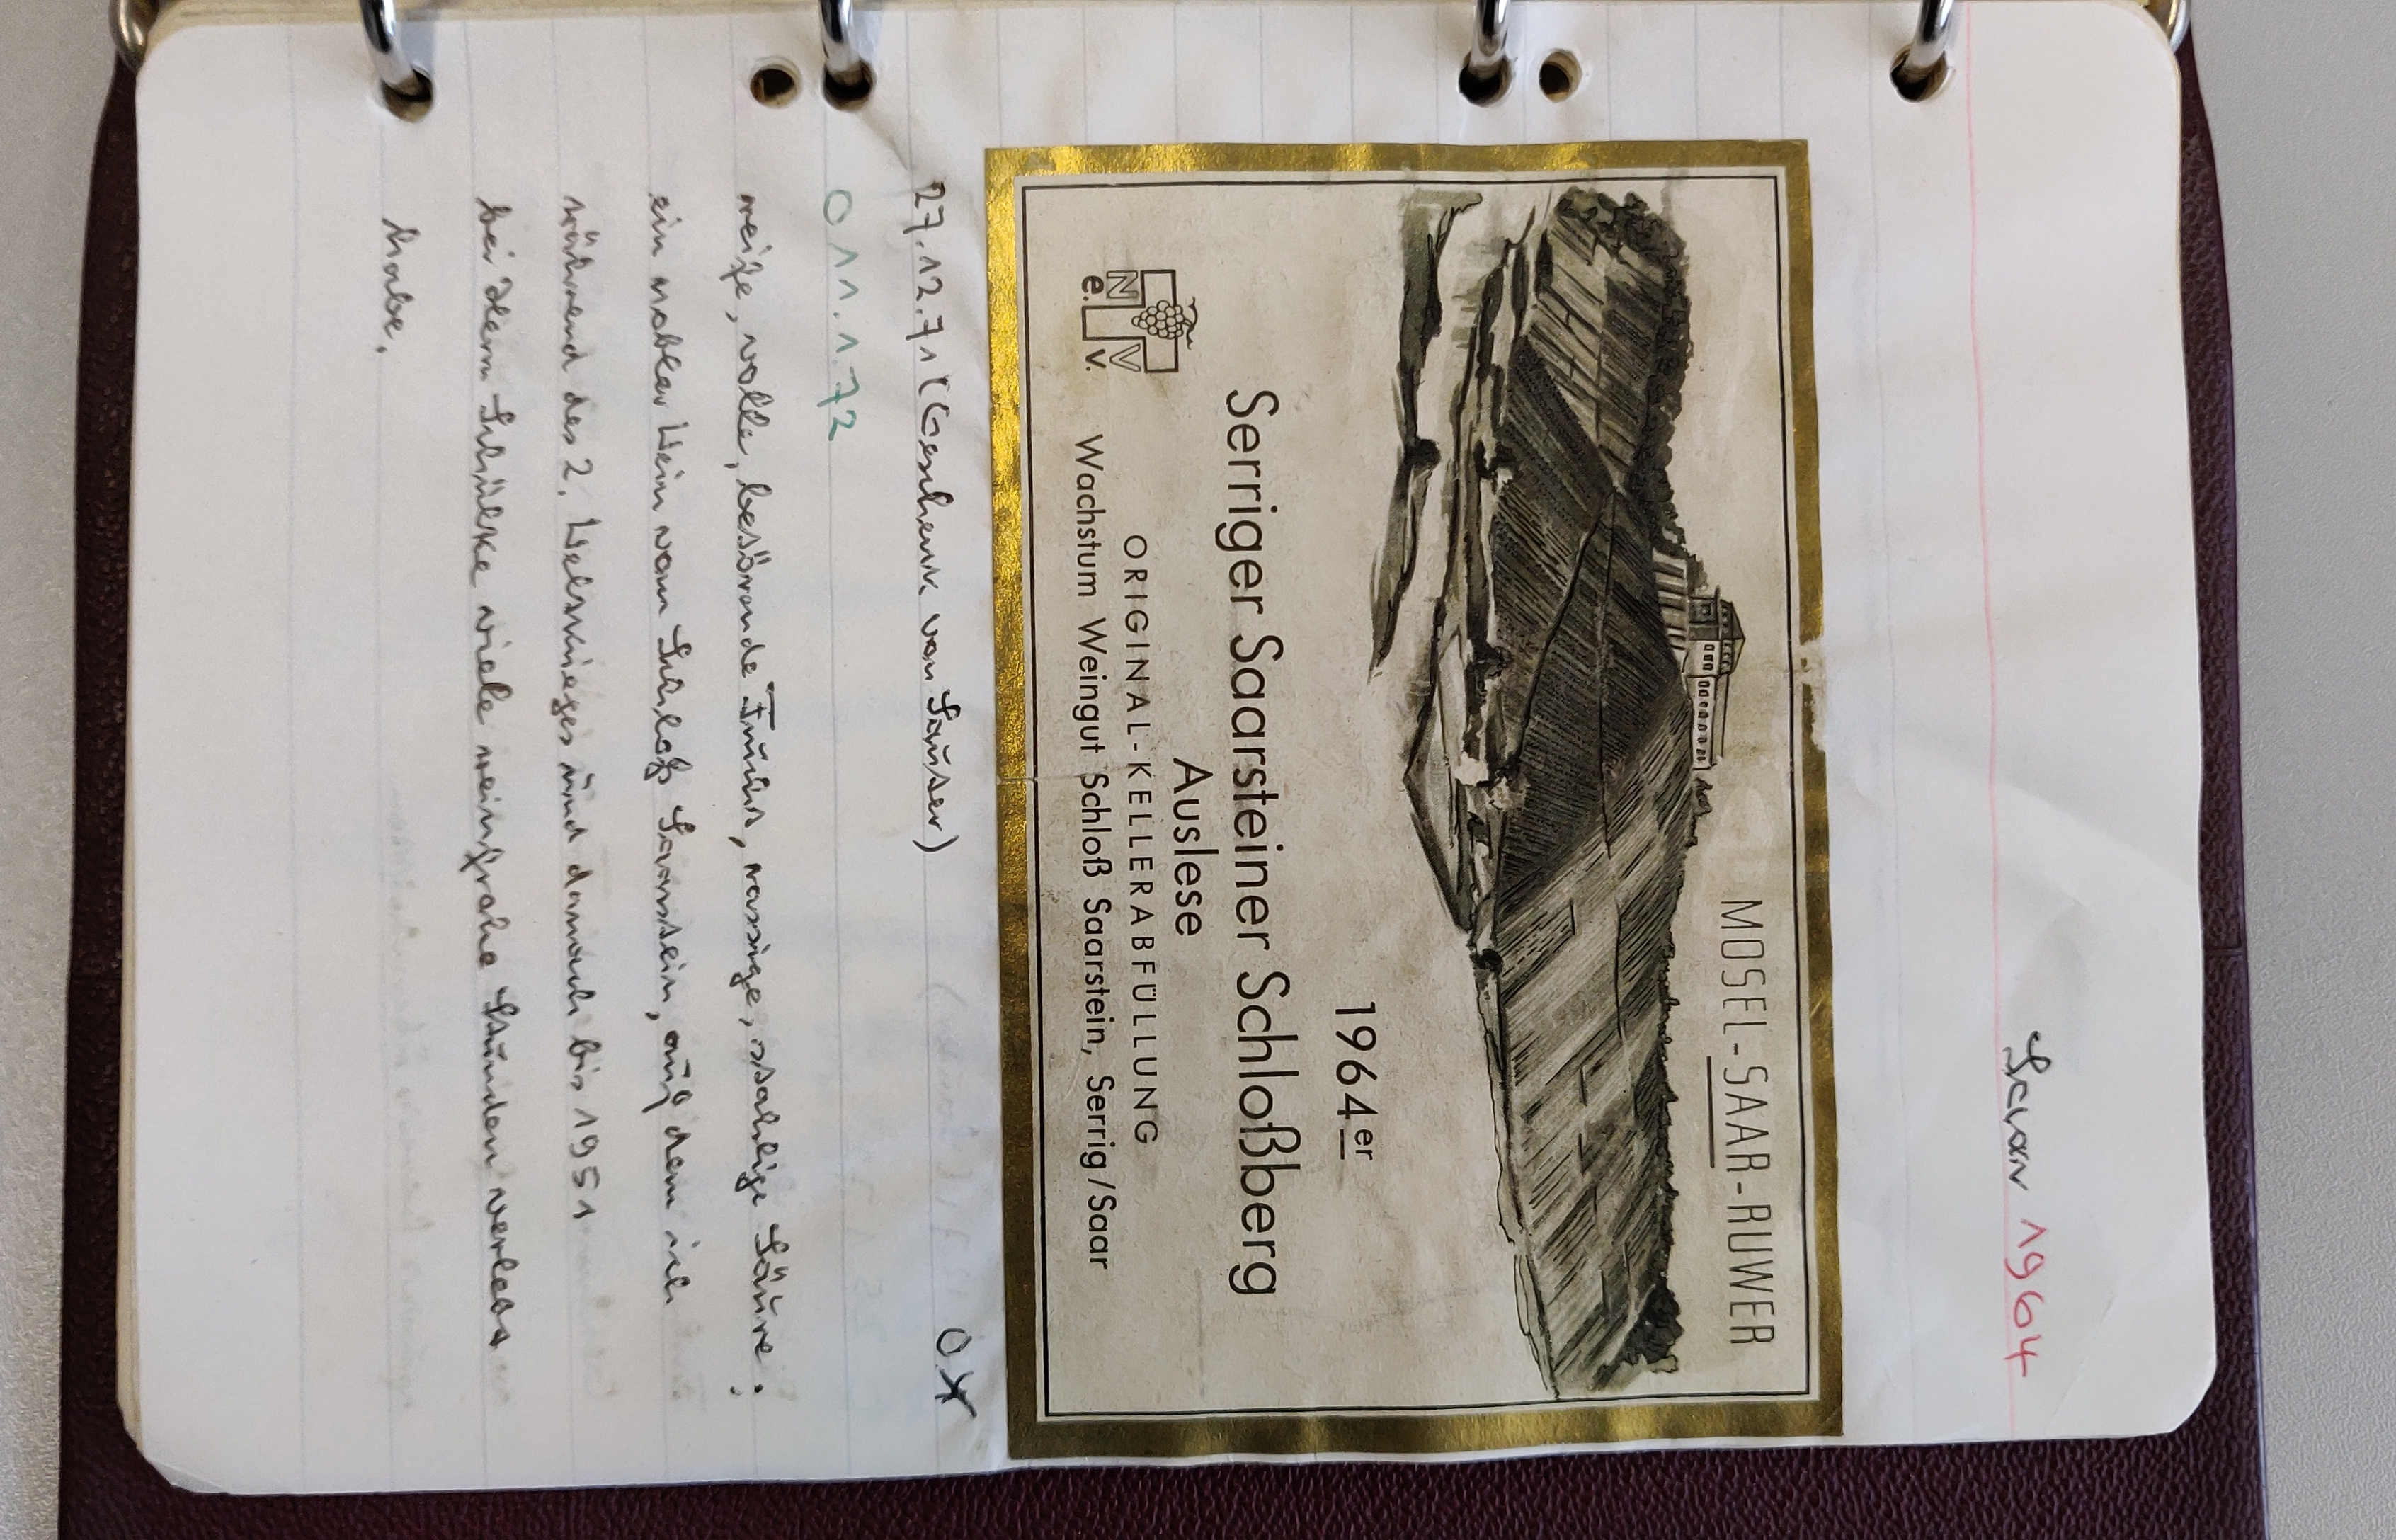 Saar 1964
MOSEL-SAAR-RUWER
1964er
Serriger Saarsteiner Schloßberg
Auslese
ORIGINAL-KELLERABFÜLLUNG
Wachstum Weingut Schloß Saarstein, Serrig/Saar
N V
e. v.
27.12.71 (Geschenk von Sauter)
O 11.1.72
reife, volle, betörende Frucht, rassige, stahlige Säure;
ein nobler Wein vom Schloß Saarstein, auf dem ich
während des 2. Weltkrieges und danach bis 1951
bei Herrn Schülke viele weinfrohe Stunden verlebt
habe.